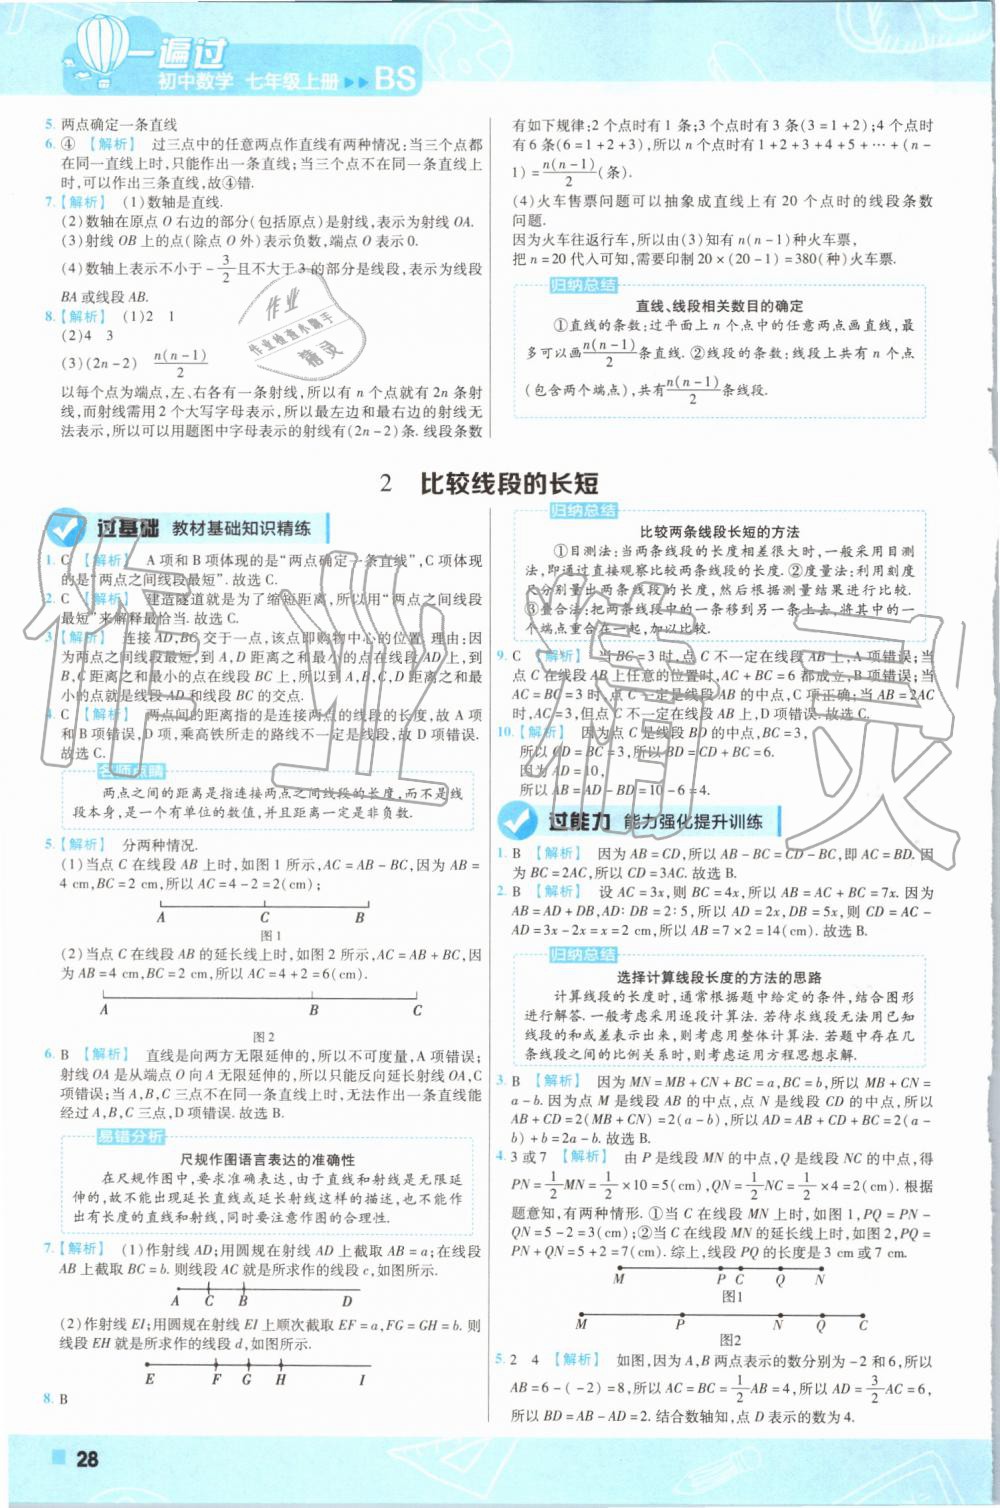 一遍过
初中数学 七年级上册 ▶▶ BS
5. 两点确定一条直线
6. ④ 【解析】 过三点中的任意两点作直线有两种情况:当三个点都
在同一直线上时,只能作出一条直线;当三个点不在同一条直线上
时,可以作出三条直线,故④错.
7.【解析】 (1)数轴是直线.
(2)数轴在原点 O 右边的部分(包括原点)是射线,表示为射线 OA.
(3)射线 OB 上的点(除点 O 外)表示负数,端点 O 表示 0.
(4)数轴上表示不小于 -3/2 且不大于 3 的部分是线段,表示为线段
BA 或线段 AB.
8.【解析】 (1)2 1
(2)4 3
(3)(2n-2) n(n-1)/2
以每个点为端点,左、右各有一条射线,所以有 n 个点就有 2n 条射
线,而射线需用 2 个大写字母表示,所以最左边和最右边的射线无
法表示,所以可以用题图中字母表示的射线有(2n-2)条. 线段条数
有如下规律:2 个点时有 1 条;3 个点时有 3 条(3=1+2);4 个点时
有 6 条(6=1+2+3),所以 n 个点时有 1+2+3+4+5+…+(n-
1)=n(n-1)/2(条).
(4)火车售票问题可以抽象成直线上有 20 个点时的线段条数
问题.
因为火车往返行车,所以由(3)知有 n(n-1)种火车票,
把 n=20 代入可知,需要印制 20×(20-1)=380(种)火车票.
归纳总结
直线、线段相关数目的确定
①直线的条数:过平面上 n 个点中的任意两点画直线,最
多可以画 n(n-1)/2 条直线. ②线段的条数:线段上共有 n 个点
(包含两个端点),共有 n(n-1)/2 条线段.
2 比较线段的长短
过基础 教材基础知识精练
1. C 【解析】 A 项和 B 项体现的是“两点确定一条直线”,C 项体现
的是“两点之间线段最短”. 故选 C.
2. C 【解析】 建造隧道就是为了缩短距离,所以用“两点之间线段
最短”来解释最恰当. 故选 C.
3.【解析】 连接 AD,BC 交于一点,该点即购物中心的位置. 理由:因
为两点之间线段最短,到 A,D 距离之和最小的点在线段 AD 上,到
B,C 距离之和最小的点在线段 BC 上,所以到 A,B,C,D 距离之和最
小的点就是线段 AD 和线段 BC 的交点.
4. C 【解析】 两点间的距离指的是连接两点的线段的长度,故 A 项
和 B 项错误,D 项,乘高铁所走的路线不一定是线段,故 D 项错误.
故选 C.
名师点睛
两点之间的距离是指连接两点之间线段的长度,而不是线
段本身,是一个有单位的数值,并且距离一定是非负数.
5.【解析】 分两种情况.
(1)当点 C 在线段 AB 上时,如图 1 所示,AC=AB-BC,因为 AB=
4 cm,BC=2 cm,所以 AC=4-2=2(cm);
A C B
图1
(2)当点 C 在线段 AB 的延长线上时,如图 2 所示,AC=AB+BC,因
为 AB=4 cm,BC=2 cm,所以 AC=4+2=6(cm).
A B C
图2
6. B 【解析】 直线是向两方无限延伸的,所以不可度量,A 项错误;
射线 OA 是从端点 O 向 A 无限延伸的,所以只能反向延长射线 OA,C
项错误;当 A,B,C 三点不在同一条直线上时,无法作出一条直线能
经过 A,B,C 三点,D 项错误. 故选 B.
易错分析
尺规作图语言表达的准确性
在尺规作图中,要求准确表达,由于直线和射线是无限延
伸的,故不能出现延长直线或延长射线这样的描述,也不能作
出有长度的直线和射线,同时要注意作图的合理性.
7.【解析】 (1)作射线 AD;用圆规在射线 AD 上截取 AB=a;在线段
AB 上截取 BC=b. 则线段 AC 就是所求作的线段 c,如图所示.
A C B D
(2)作射线 EI;用圆规在射线 EI 上顺次截取 EF=a,FG=GH=b. 则
线段 EH 就是所求作的线段 d,如图所示.
E F G H I
8. B
归纳总结
比较两条线段长短的方法
①目测法:当两条线段的长度相差很大时,一般采用目测
法,即通过直接观察比较两条线段的长度. ②度量法:利用刻度
尺分别量出两条线段的长度,然后根据测量结果进行比较.
③叠合法:把两条线段中的一条移到另一条上去,将其中的一
个端点重合在一起,加以比较.
9. C 【解析】 当 BC=3 时,点 C 不一定在线段 AB 上,A 项错误;当
点 C 在线段 AB 上任意的位置时,AC+BC=6 都成立,B 项错误;当
AC=BC=3 时,点 C 一定是线段 AB 的中点,C 项正确;当 AB=2AC
时,AC=3,但点 C 不一定在线段 AB 上,D 项错误. 故选 C.
10.【解析】 因为点 C 是线段 BD 的中点,BC=3,
所以 CD=BC=3,所以 BD=CD+BC=6.
因为 AD=10,
所以 AB=AD-BD=10-6=4.
过能力 能力强化提升训练
1. B 【解析】 因为 AB=CD,所以 AB-BC=CD-BC,即 AC=BD. 因
为 BC=2AC,所以 CD=3AC. 故选 B.
2. B 【解析】 设 AC=3x,则 BC=4x,所以 AB=AC+BC=7x. 因为
AB=AD+DB,AD∶DB=2∶5,所以 AD=2x,DB=5x,则 CD=AC-
AD=3x-2x=x=2 cm,所以 AB=7×2=14(cm). 故选 B.
归纳总结
选择计算线段长度的方法的思路
计算线段的长度时,通常根据题中给定的条件,结合图形
进行解答. 一般考虑采用逐段计算法. 若待求线段无法用已知
线段的和或差表示出来,则考虑用整体计算法. 若题中存在几
条线段之间的比例关系时,则考虑运用方程思想求解.
3. B 【解析】 因为 MN=MB+CN+BC=a,BC=b,所以 MB+CN=
a-b. 因为点 M 是线段 AB 的中点,点 N 是线段 CD 的中点,所以
AB+CD=2(MB+CN)=2(a-b),所以 AD=AB+CD+BC=2(a-
b)+b=2a-b. 故选 B.
4. 3 或 7 【解析】 由 P 是线段 MN 的中点,Q 是线段 NC 的中点,得
PN=1/2MN=1/2×10=5(cm),QN=1/2NC=1/2×4=2(cm). 根据
题意知,有两种情形. ①当 C 在线段 MN 上时,如图 1,PQ=PN-
QN=5-2=3(cm);②当 C 在线段 MN 的延长线上时,如图 2,PQ=
PN+QN=5+2=7(cm). 综上,线段 PQ 的长度是 3 cm 或 7 cm.
M P C Q N
图1
M P N Q C
图2
5. 2 4 【解析】 如图,因为 A,B 两点表示的数分别为 -2 和 6,所以
AB=6-(-2)=8,所以 AC=BC=1/2AB=4,所以 AD=3/2AC=6,
所以 BD=AB-AD=2. 结合数轴知,点 D 表示的数为 4.
28
作业
作业检查小助手
精灵
作业精灵